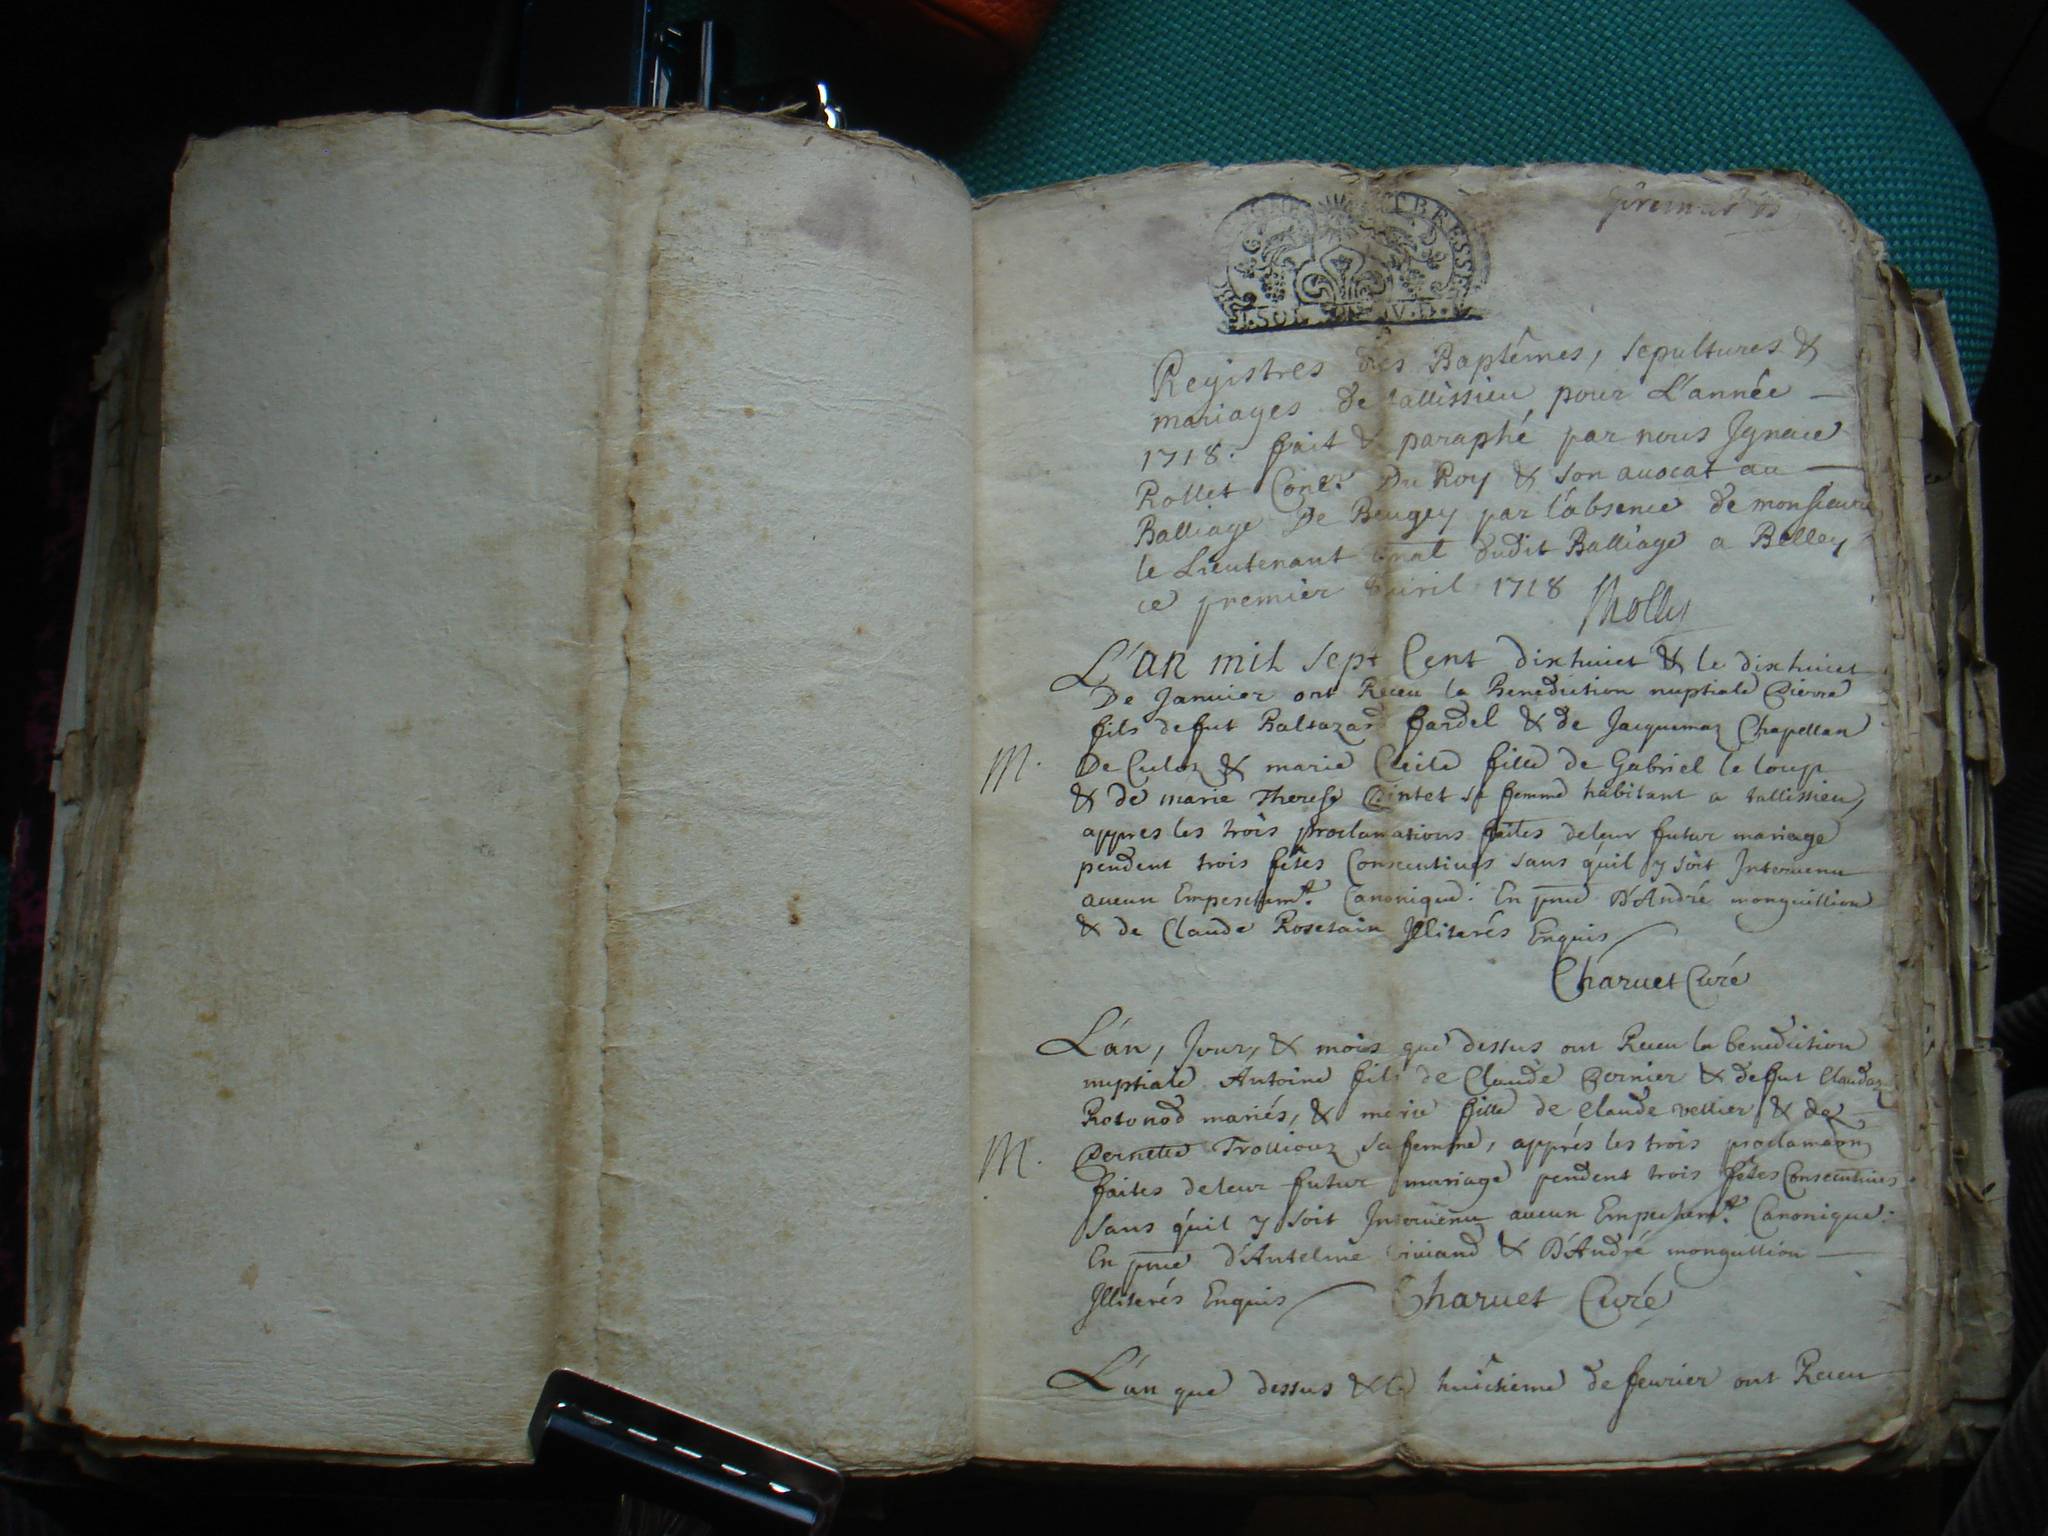 Registres des Baptêmes, sepultures &
mariages de tallissieu pour L'année
1718. fait & paraphé par nous Ignace
Rollet Coner. Du Roy & son auocat au
Balliage De Beugey par l'absence de monsieur
le Lieutenant gnal dudit Balliage a Belley
ce premier auril 1718
L'an mil sept Cent dixhuict & le dixhuict
De Januier ont Receu la Benediction nuptiale Pierre
fils de fut Baltazard fardel & de Jacquemaz Chapellan
M. De Culoz & marie Cecile fille de Gabriel le loup
& de marie Therese Quintet sa femme habitant a tallissieu,
appres les trois proclamations faites de leur futur mariage
pendent trois fêtes Consecutiues sans qu'il y soit Interuenu
aucun Empeschemt. Canonique: En pnce D'André monguillion
& de Claude Rosetain Illiterés Enquis
Charuet Curé
L'an, Jour, & mois que dessus ont Receu la benediction
nuptiale Antoine fils de Claude Bernier & de fut Claudaz
Rotonod mariés, & marie fille de Claude vellier & de
M. Pernette Trolliouz sa femme, apprés les trois proclamaons
faites de leur futur mariage pendent trois fêtes Consecutiues
sans qu'il y soit Interuenu aucun Empeschemt. Canonique:
En pnce d'Antelme viuiand & D'André monguillion
Illiterés Enquis Charuet Curé
L'an que dessus & le huictieme de feurier ont Receu